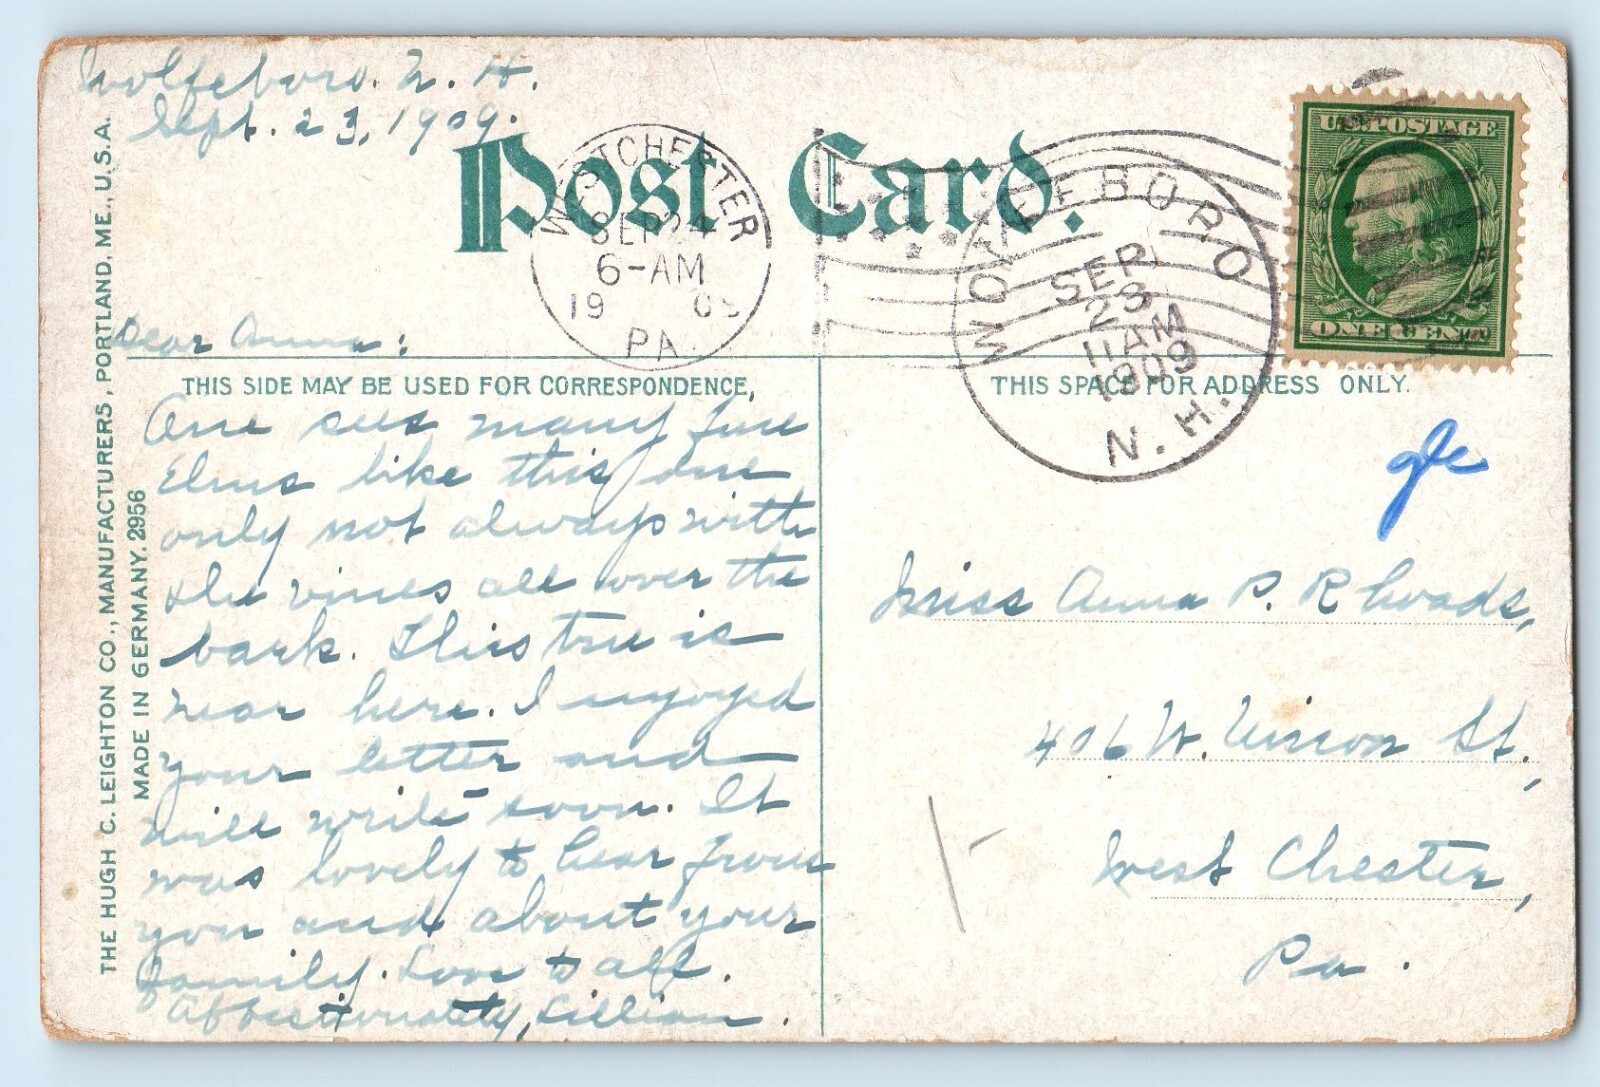 Wolfeboro. N. H.
Sept. 23, 1909.
Post Card.
WESTCHESTER
SEP 24
6-AM
19
PA.
WOLFEBORO
SEP
23
11 AM
1909
N. H.
U.S. POSTAGE
ONE CENT
Dear Anna:
THIS SIDE MAY BE USED FOR CORRESPONDENCE,
THIS SPACE FOR ADDRESS ONLY.
One sees many fine
Elms like this one
only not always with
the vines all over the
bark. This tree is
near here. I enjoyed
your letter and
will write soon. It
was lovely to hear from
you and about your
family. Love to all.
Affectionately, Lillian.
Miss Anna P. Rhoads,
406 W. Union St.,
West Chester,
Pa.
THE HUGH C. LEIGHTON CO., MANUFACTURERS, PORTLAND, ME., U.S.A.
MADE IN GERMANY. 2956